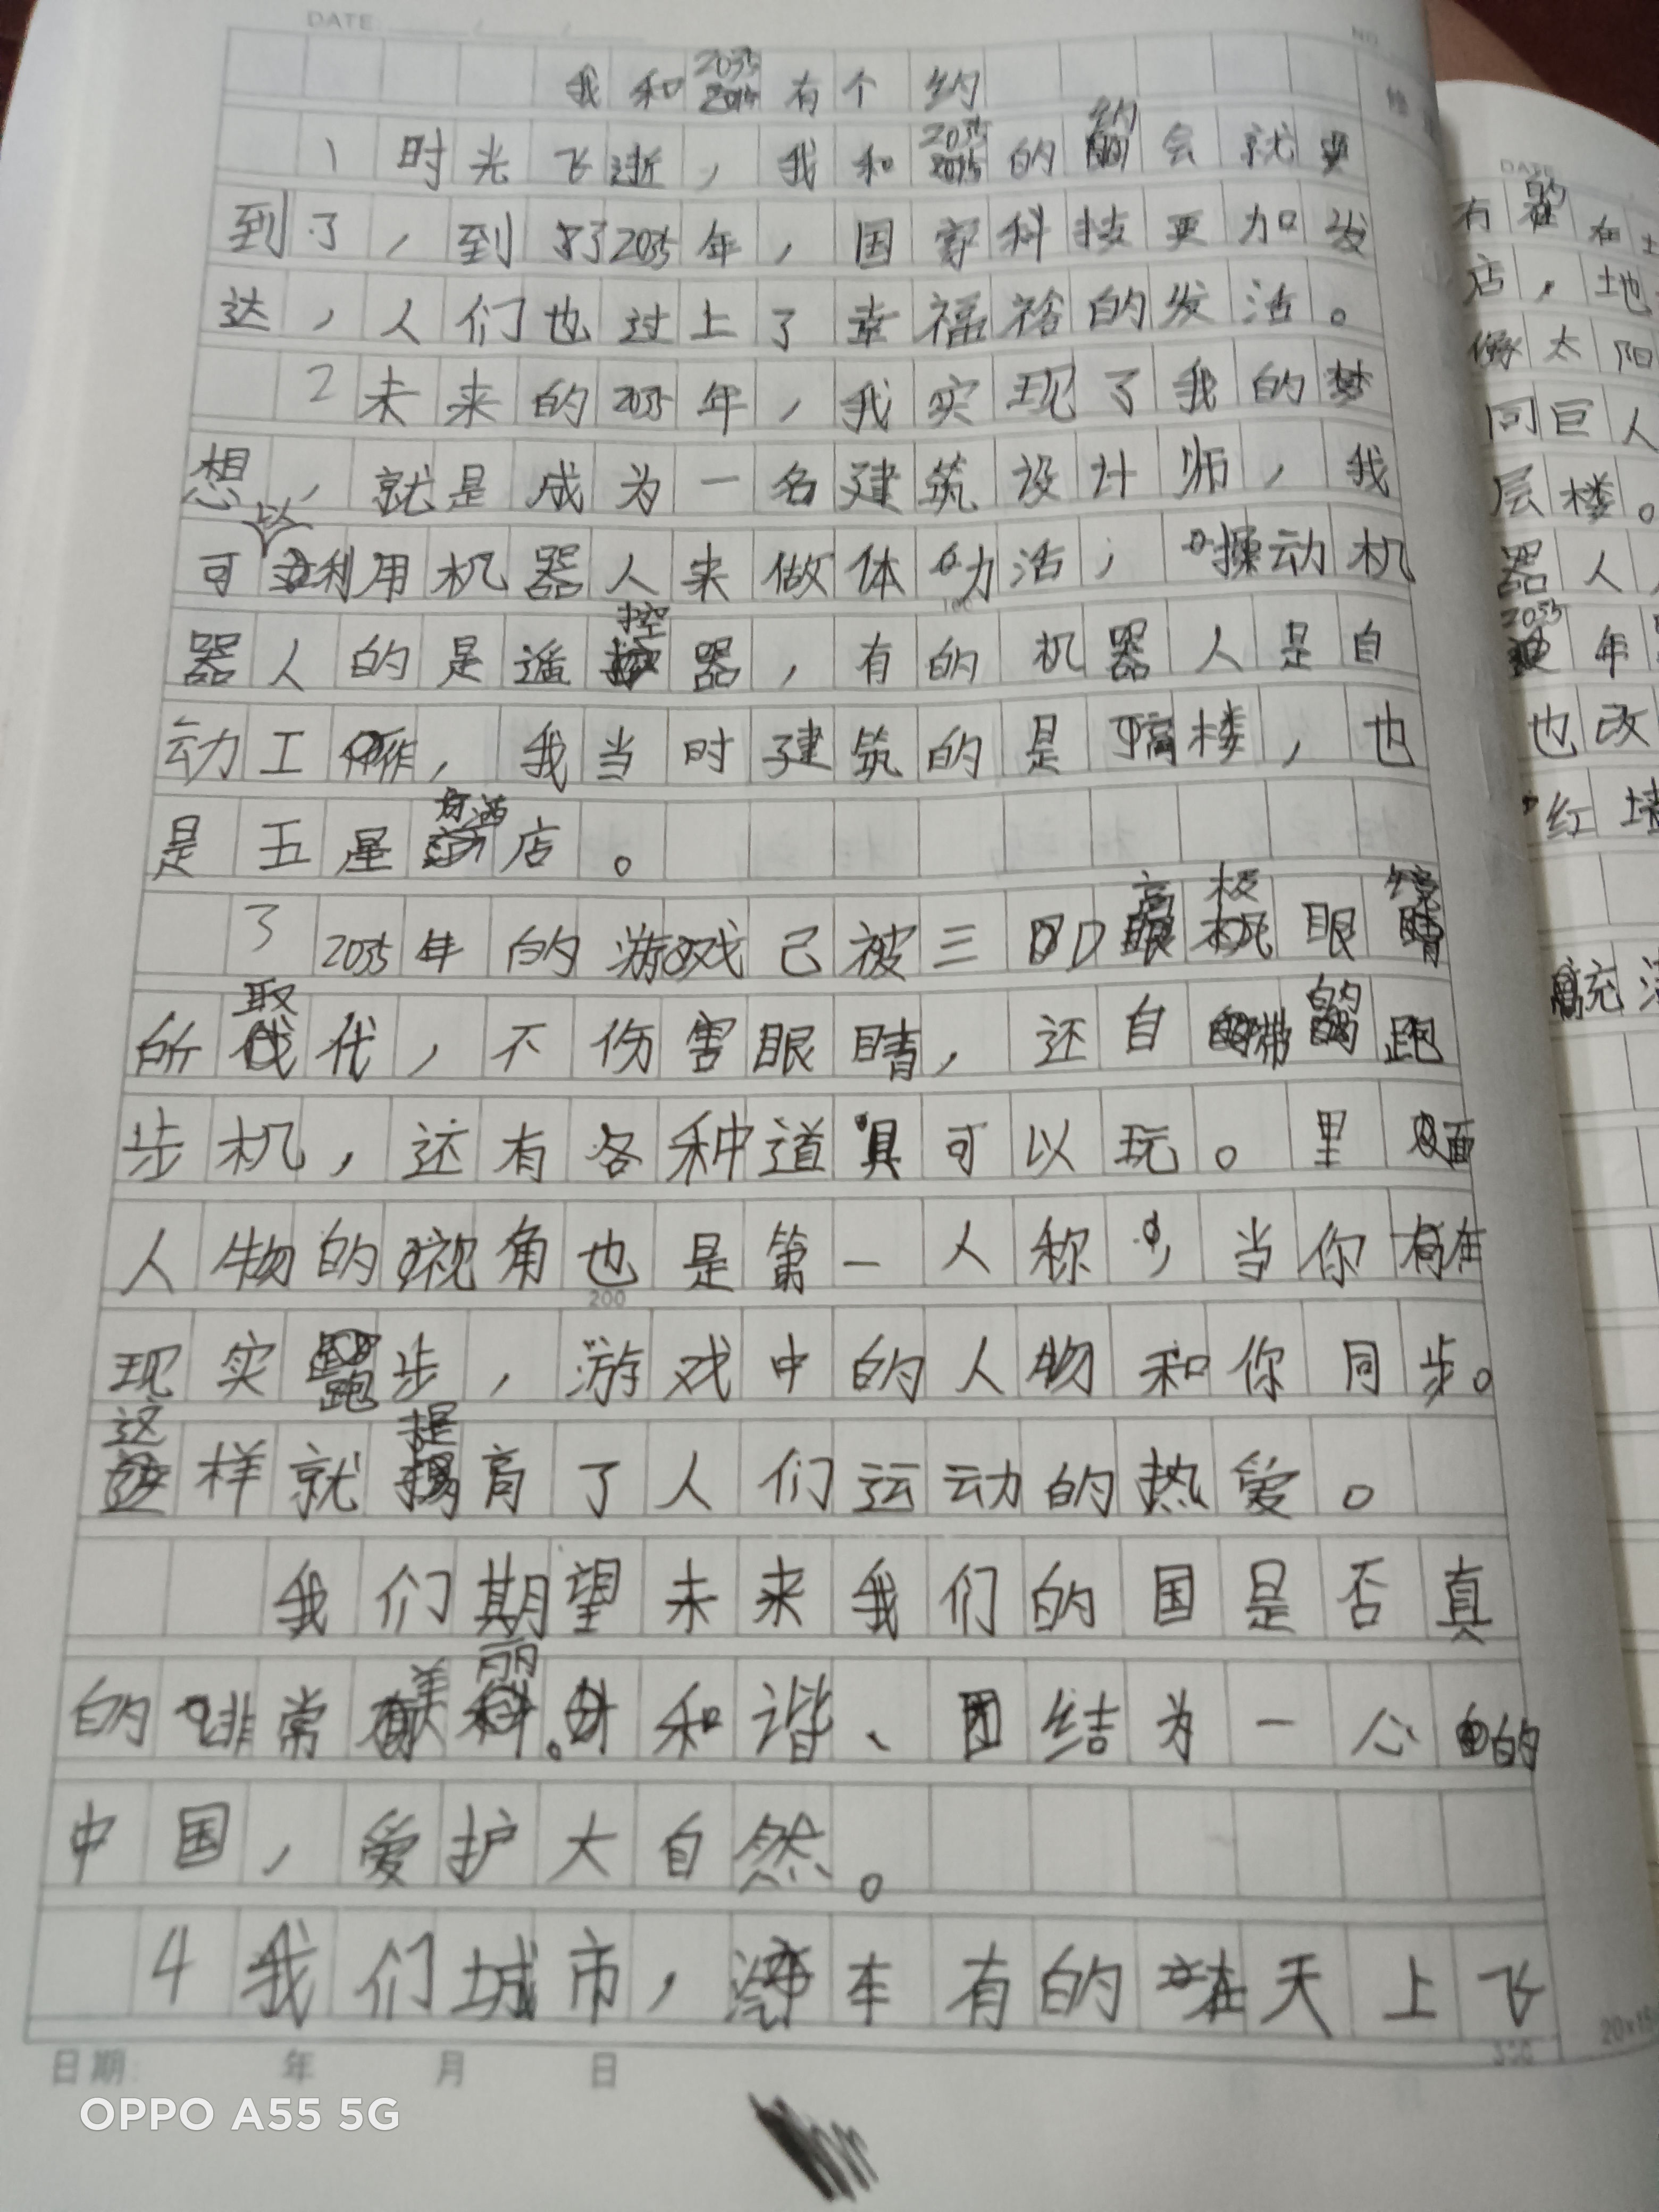 DATE
NO
我和2035有个约
1时光飞逝，我和2035的约会就要
到了，到了2035年，国家科技更加发
达，人们也过上了幸福裕的发活。
2未来的2035年，我实现了我的梦
想，就是成为一名建筑设计师，我
可以利用机器人来做体力活，操动机
器人的是遥控器，有的机器人是自
100
动工作，我当时建筑的是高楼，也
是五星酒店。
3 2035年的游戏己被三D高级眼镜
所取代，不伤害眼睛，还自带的跑
步机，还有各种道具可以玩。里面
人物的视角也是第一人称，当你在
200
现实跑步，游戏中的人物和你同步。
这样就提高了人们运动的热爱。
我们期望未来我们的国是否真
的非常美丽。和谐、团结为一心的
中国，爱护大自然。
4我们城市，汽车有的在天上飞
300
日期: 年 月 日
OPPO A55 5G
DATE
有的在
店，地
像太阳
同巨人
层楼。
器人
2035年
也改
红墙
充满